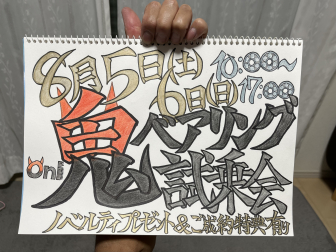 8月5日(土)
6日(日)
10:00〜
17:00
Oni
鬼ベアリング
試乗会
ノベルティプレゼント&ご成約特典有り